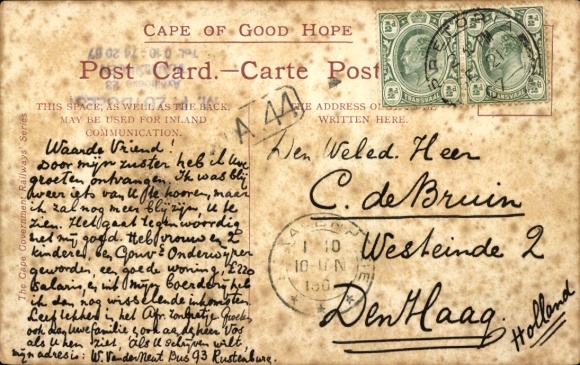 CAPE OF GOOD HOPE
Post Card.—Carte Post
THIS SPACE, AS WELL AS THE BACK,
MAY BE USED FOR INLAND
COMMUNICATION.
THE ADDRESS ON
WRITTEN HERE.
The Cape Government Railways' Series
A 44
½d ½d
½d ½d
TRANSVAAL
TRANSVAAL
PRETOR
Waarde Vriend!
Door mijn zuster heb ik Uw
groeten ontvangen. Ik was blij
weer iets van U te hooren, maar
ik zal nog meer blij zijn U te
zien. Het gaat tegenwoordig
met mij goed. Heb vrouw en 2
kinderen, ben Gouv Onderwijzer
geworden, een goede woning, £220
salaris, en uit mijn boerderij heb
ik dan nog wisselende inkomsten.
Leef lekker in het Afr. zonnetje
ook aan uwe familie, ook aan de heer Vos
als U hem ziet. Als U schrijven wilt,
mijn adres is: W. VanderNeut Bus 93 Rustenburg.
Den Weled. Heer
C. de Bruin
Westeinde 2
Den Haag
Holland
1 10
10-11 N
190